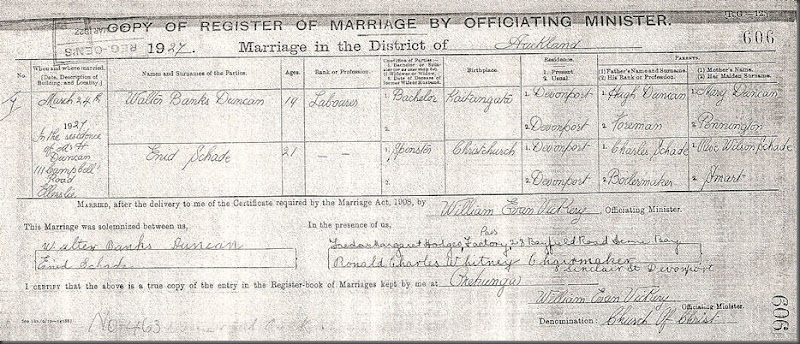 COPY OF REGISTER OF MARRIAGE BY OFFICIATING MINISTER.
REG-GEN'S
1927. Marriage in the District of Auckland
606
No. When and where married. (Date, Description of Building, and Locality.) Names and Surnames of the Parties. Ages. Rank or Profession. Condition of Parties— Birthplace. Residence. 1. Present 2. Usual. PARENTS. (1) Father's Name and Surname. (2) His Rank or Profession. (1) Mother's Name. (2) Her Maiden Surname.
March 24th Walter Banks Duncan 19 Labourer 1 Bachelor Kaitangata 1 Devonport 1 Hugh Duncan 1 Mary Duncan
1927 2 2 Devonport 2 Foreman 2 Pennington
In the residence
of Mr H Duncan Enid Schade 21 — — 1 Spinster Christchurch 1 Devonport 1 Charles Schade Wilson Schade
111 Campbell Road
Ellerslie 2 2 Devonport 2 Boilermaker 2 Smart
MARRIED, after the delivery to me of the Certificate required by the Marriage Act, 1908, by William Evan Vickery Officiating Minister.
This Marriage was solemnized between us, In the presence of us,
Walter Banks Duncan Margaret Hodges, Factory, 23 Bayfield Road Herne Bay
Enid Schade Ronald Charles Whitney Chairmaker
Sinclair St Devonport
I CERTIFY that the above is a true copy of the entry in the Register-book of Marriages kept by me at Onehunga
William Evan Vickery Officiating Minister.
No 463
Denomination: Church Of Christ
606